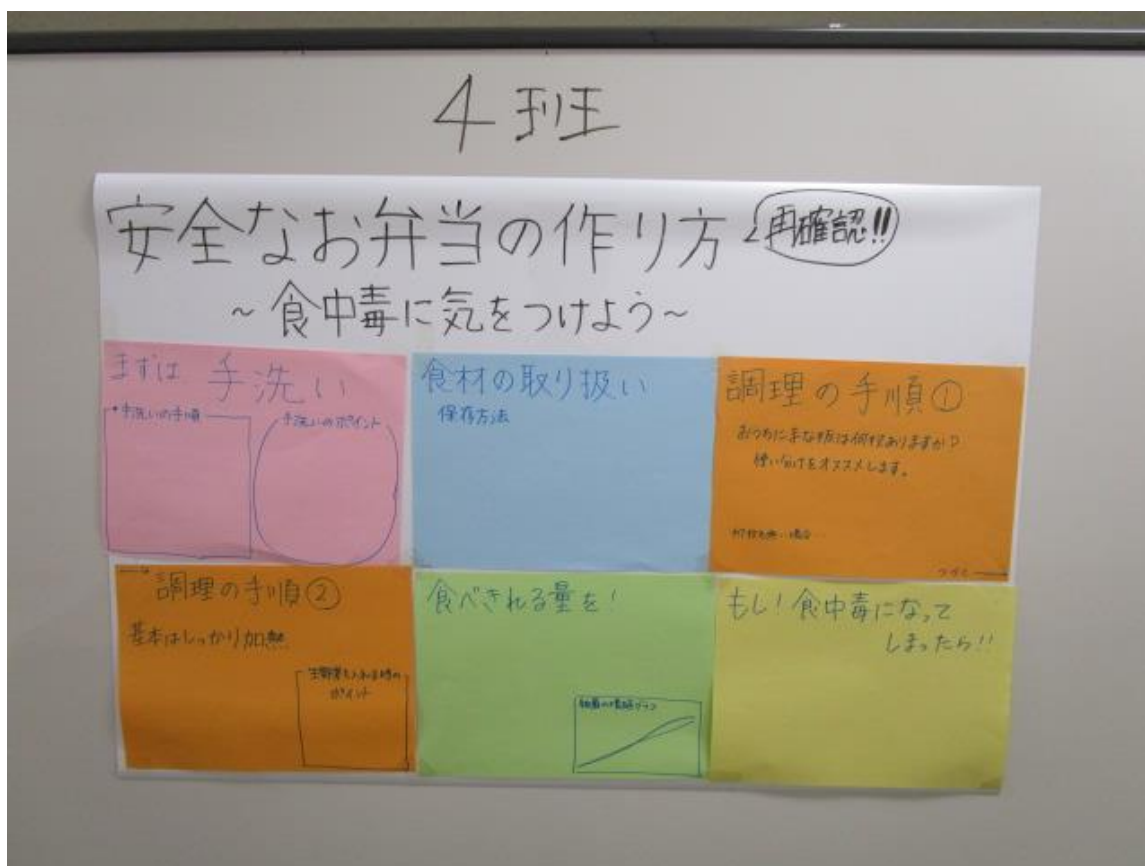 4班
安全なお弁当の作り方
再確認!!
~食中毒に気をつけよう~
まずは 手洗い
・手洗いの手順
手洗いのポイント
食材の取り扱い
保存方法
調理の手順①
おうちにまな板は何枚ありますか?
使い分けをオススメします。
つづく→
→調理の手順②
基本はしっかり加熱
生野菜を入れる時の
ポイント
食べきれる量を!
細菌の増殖グラフ
もし!食中毒になって
しまったら!!